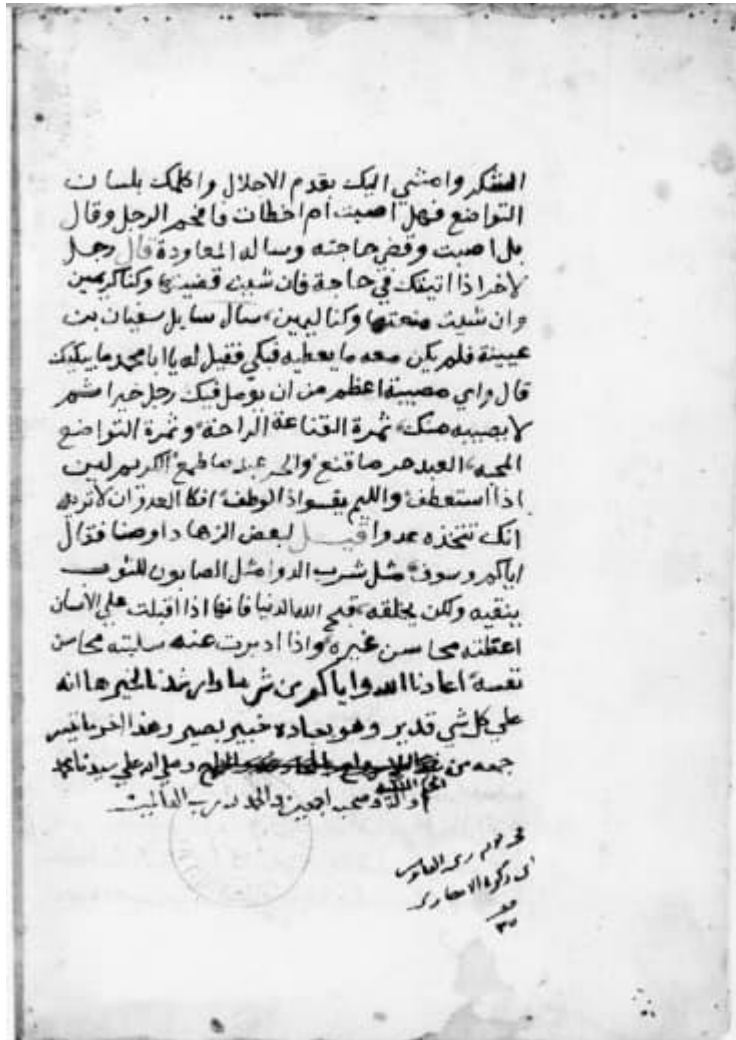 الشكر وامشي اليك بقدم الاجلال واكلمك بلسان
التواضع فهل اصبت ام اخطات فافحم الرجل وقال
بل اصبت وقضي حاجته وساله المعاودة قال رجل
لاخر اذا اتيتك في حاجة فان شيت قضيتها وكنا كريمين
وان شيت منعتها وكنا ليمين، سال سايل سفيان بن
عيينة فلم يكن معه ما يعطيه فبكي فقيل له يا ابا محمد ما يبكيك
قال واي مصيبة اعظم من ان يومل فيك رجل خيرا ثم
لا يصيبه منك، ثمرة القناعة الراحة، وثمرة التواضع
المحبه، العبد حر ما قنع، والحر عبد ما طمع، الكريم يلين
اذا استعطف، واللئيم يقسو اذا الوطف، انكا لعدوك ان لا تريه
انك تتخذه عدوا قيل لبعض الزهاد اوصنا فقال
اياكم وسوف، مثل شرب الدوا مثل الصابون للثوب
ينقيه ولكن يخلقه، قبح الله الدنيا فانها اذا اقبلت علي الانسان
اعطته محاسن غيره، واذا ادبرت عنه سلبته محاسن
نفسه، اعاذنا الله واياكم من شرها وارشدنا لخيرها انه
علي كل شي قدير وهو بعباده خبير بصير وهذا اخر ما تيسر
جمعه من وصلي الله علي سيدنا محمد
واله وصحبه اجمعين والحمد لله رب العالمين